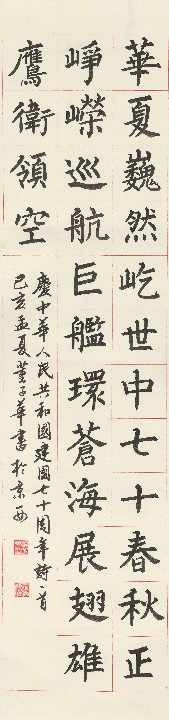 華夏巍然屹世中七十春秋正
崢嶸巡航巨艦環蒼海展翅雄
鷹衛領空
慶中華人民共和國建國七十周年詩一首
己亥孟夏董子華書於京西